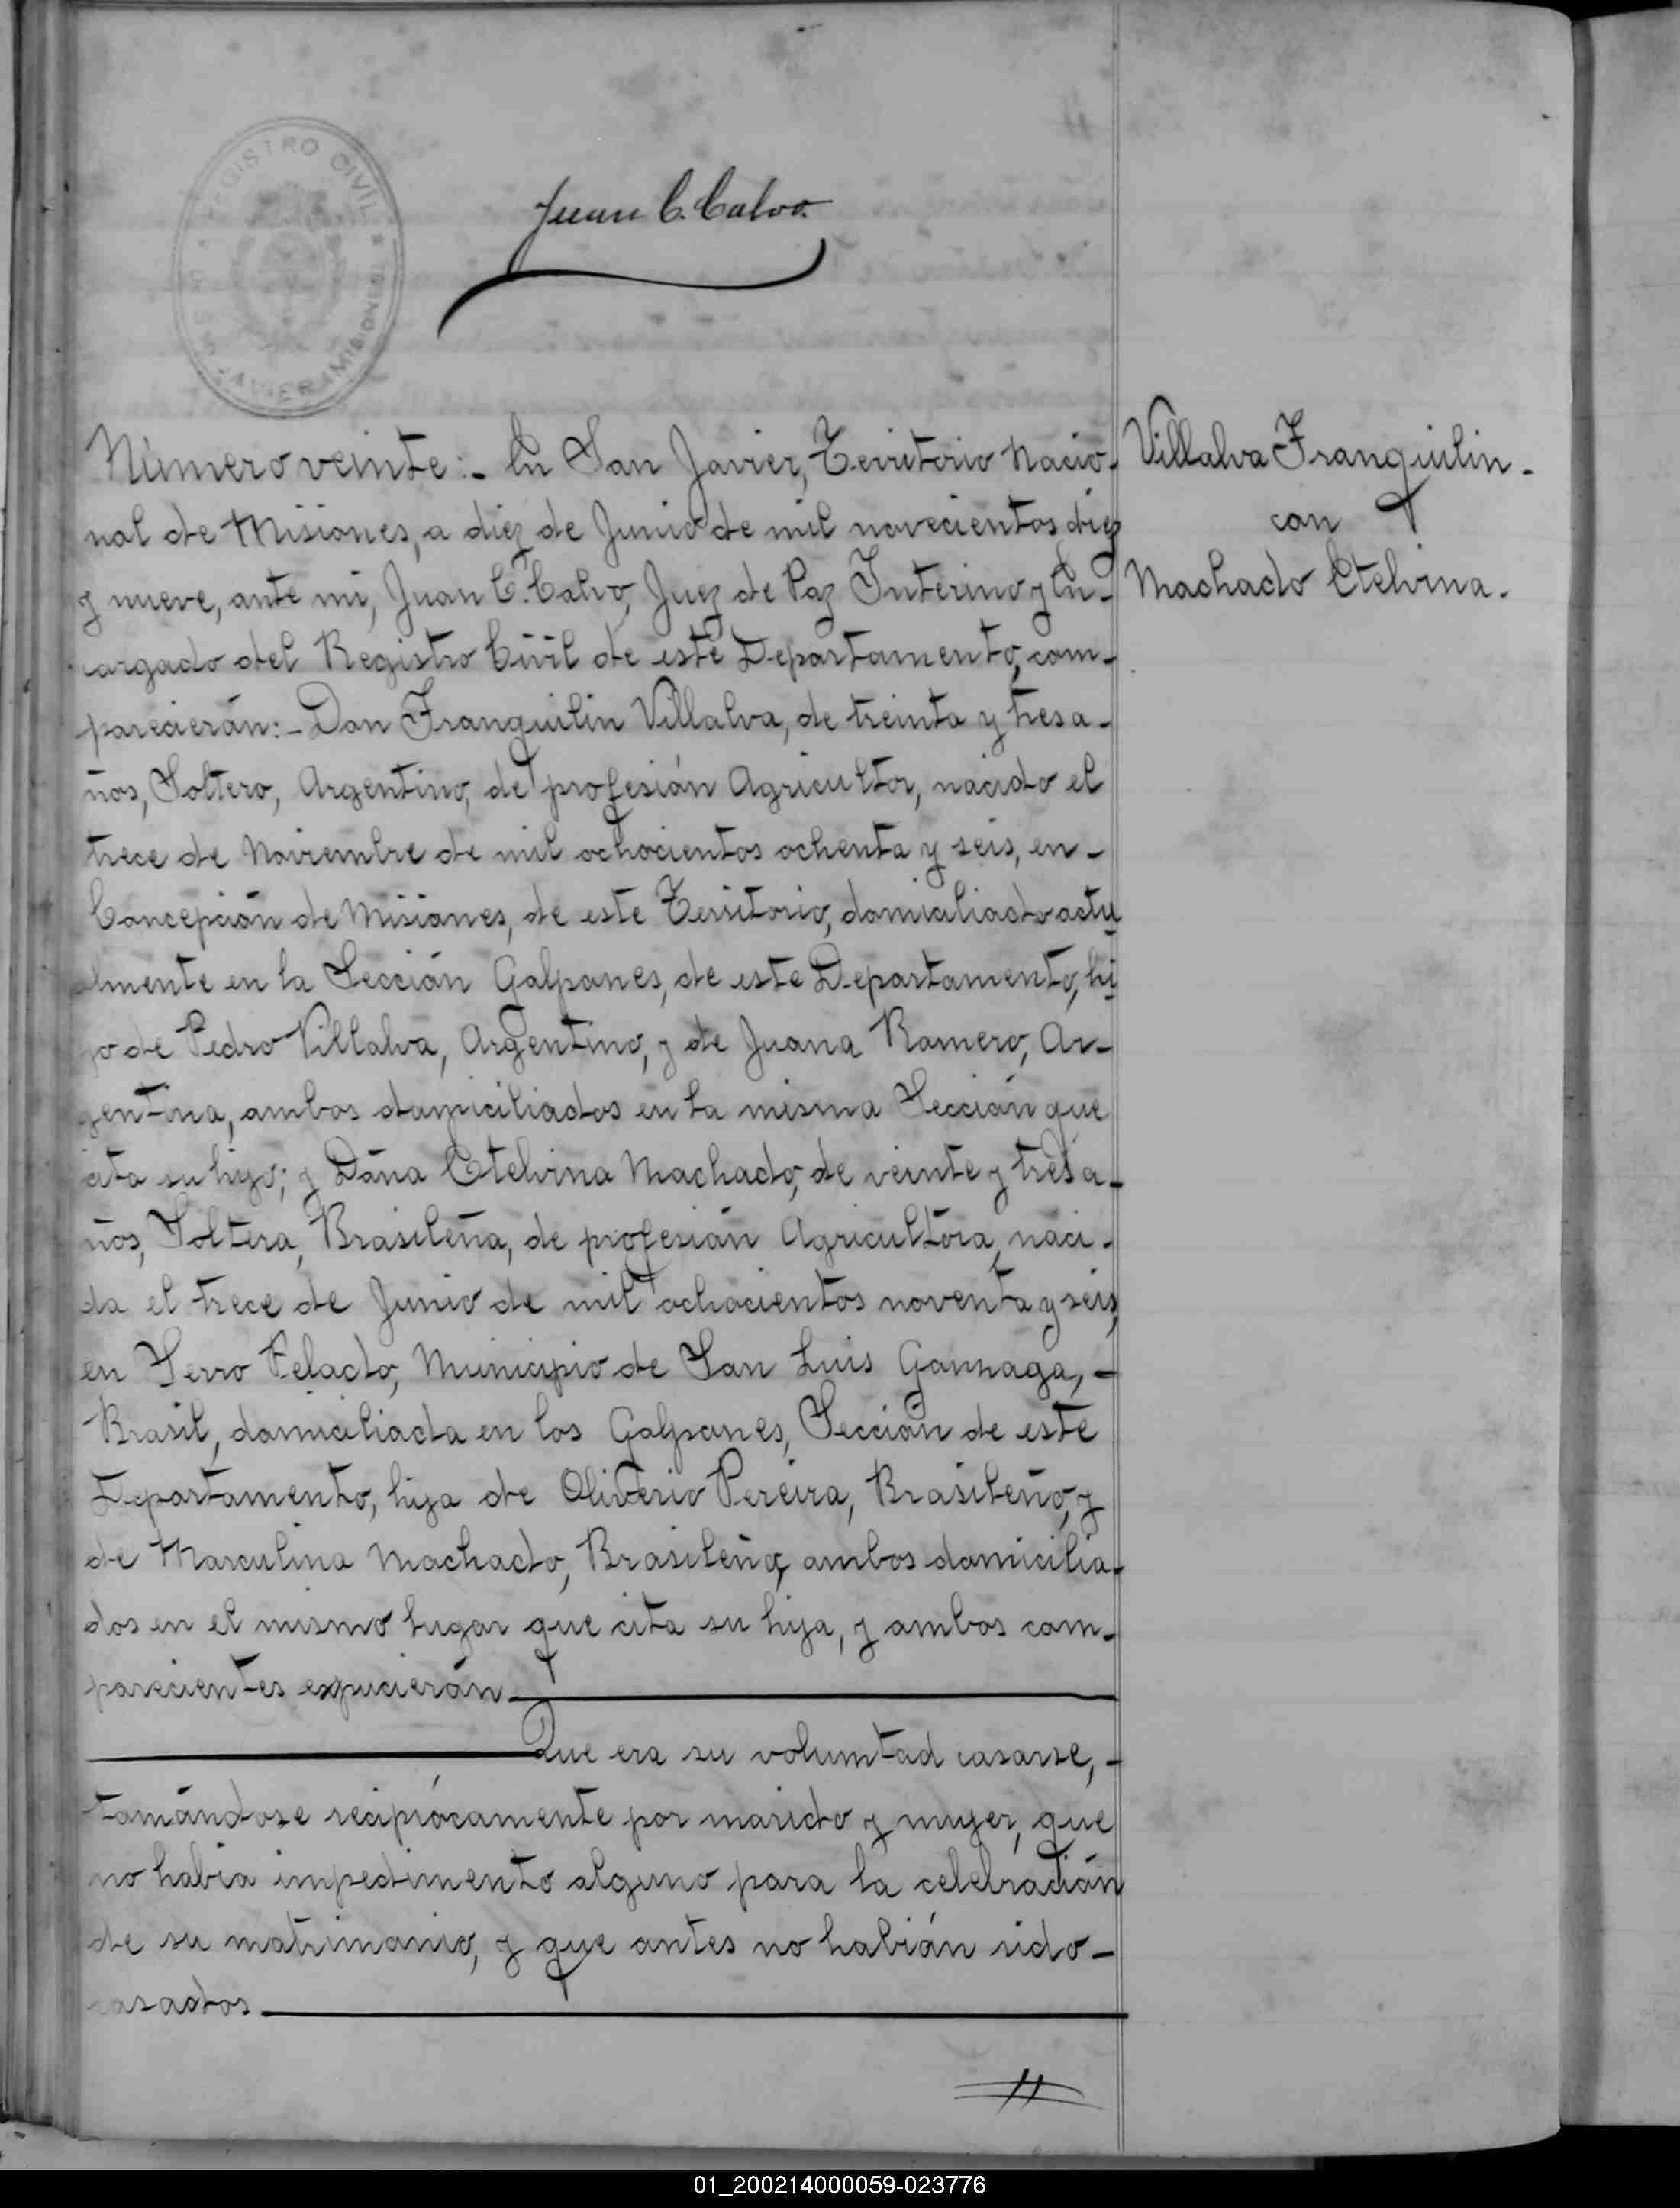 REGISTRO CIVIL
SAN JAVIER (MISIONES)
Juan C. Calvo.
Número veinte:- En San Javier, Territorio Nacio-
nal de Misiones, a diez de Junio de mil novecientos diez
y nueve, ante mi, Juan C. Calvo, Juez de Paz Interino y En-
cargado del Registro Civil de este Departamento, com-
parecierán:- Don Franquilin Villalva, de treinta y tres a-
ños, Soltero, Argentino, de profesión Agricultor, nacido el
trece de Noviembre de mil ochocientos ochenta y seis, en-
Concepción de Misiones, de este Territorio, domiciliado actu
almente en la Sección Galpones, de este Departamento, hi
jo de Pedro Villalva, Argentino, y de Juana Romero, Ar-
gentina, ambos domiciliados en la misma Sección que
cita su hijo; y Doña Etelvina Machado, de veinte y tres a-
ños, Soltera, Brasileña, de profesión Agricultora, naci-
da el trece de Junio de mil ochocientos noventa y seis,
en Serro Pelado, Municipio de San Luis Gonzaga, -
Brasil, domiciliada en los Galpones, Sección de este
Departamento, hija de Oliverio Pereira, Brasileño, y
de Marculina Machado, Brasileña, ambos domicilia-
dos en el mismo lugar que cita su hija, y ambos com-
parecientes expucierán
Que era su voluntad casarse, -
tomándose reciprócamente por marido y mujer, que
no había impedimento alguno para la celebración
de su matrimonio, y que antes no habián sido-
casados
Villalva Franquilin-
con
Machado Etelvina.
01_200214000059-023776